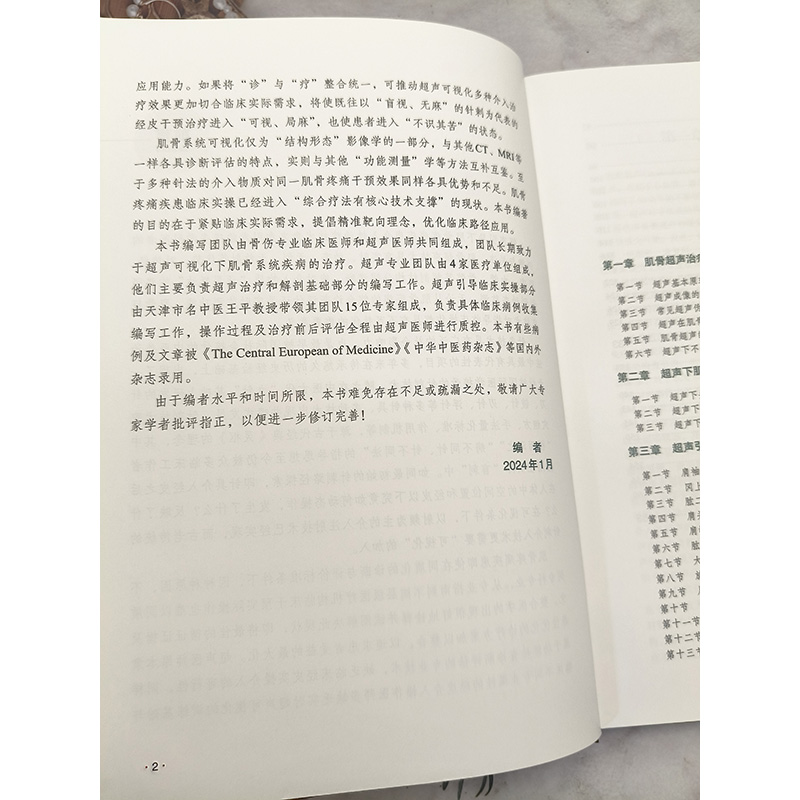 应用能力。如果将“诊”与“疗”整合统一，可推动超声可视化多种介入治
疗效果更加切合临床实际需求，将使既往以“盲视、无麻”的针刺为代表的
经皮干预治疗进入“可视、局麻”，也使患者进入“不识其苦”的状态。
肌骨系统可视化仅为“结构形态”影像学的一部分，与其他CT、MRI等
一样各具诊断评估的特点，实则与其他“功能测量”学等方法互补互鉴。至
于多种针法的介入物质对同一肌骨疼痛干预效果同样各具优势和不足。肌骨
疼痛疾患临床实操已经进入“综合疗法有核心技术支撑”的现状。本书编著
的目的在于紧贴临床实际需求，提倡精准靶向理念，优化临床路径应用。
本书编写团队由骨伤专业临床医师和超声医师共同组成，团队长期致力
于超声可视化下肌骨系统疾病的治疗。超声专业团队由4家医疗单位组成，
他们主要负责超声治疗和解剖基础部分的编写工作。超声引导临床实操部分
由天津市名中医王平教授带领其团队15位专家组成，负责具体临床病例收集
编写工作，操作过程及治疗前后评估全程由超声医师进行质控。本书有些病
例及文章被《The Central European of Medicine》《中华中医药杂志》等国内外
杂志录用。
由于编者水平和时间所限，本书难免存在不足或疏漏之处，敬请广大专
家学者批评指正，以便进一步修订完善！
编 者
2024年1月
·2·
第一章 肌骨超声治疗
第一节 超声基本原
第二节 超声成像的
第三节 常见超声伪
第四节 超声在肌骨
第五节 肌骨超声的
第六节 超声下不
第二章 超声下肌
第一节 超声下
第二节 超声下
第三节 超声下
第三章 超声引
第一节 肩袖
第二节 冈上
第三节 肱二
第四节 肩
第五节 肩
第六节 肱
第七节 大
第八节
第九节
第十节
第十一节
第十二节
第十三节